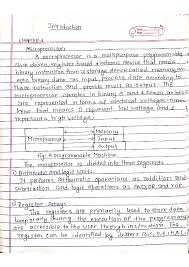 Introduction
Chapter-1
Microprocessor:
A microprocessor is a multipurpose, programmable
clock driven, register based electronic device that reads
binary instruction from a storage device called memory,
binary data as input, process data according to
those instruction and provide result as output. The
microprocessor operates in binary 0 and 1 known as bits
are represented in terms of electrical voltages
that means 0 represent low voltage and 1
represents high voltage.
Microprocessor
Memory
Input
Output
fig: A programmable Machine.
The microprocessor is divided into three segments
1) Arithmetic and logic Unit:
It performs arithmetic operations as addition and
subtraction and logic operations as AND, OR and XOR.
2) Register Array:
The registers are primarily used to store data
temporarily during the execution of the programs and
are accessible to the user through instruction. The
register can be identified by letters